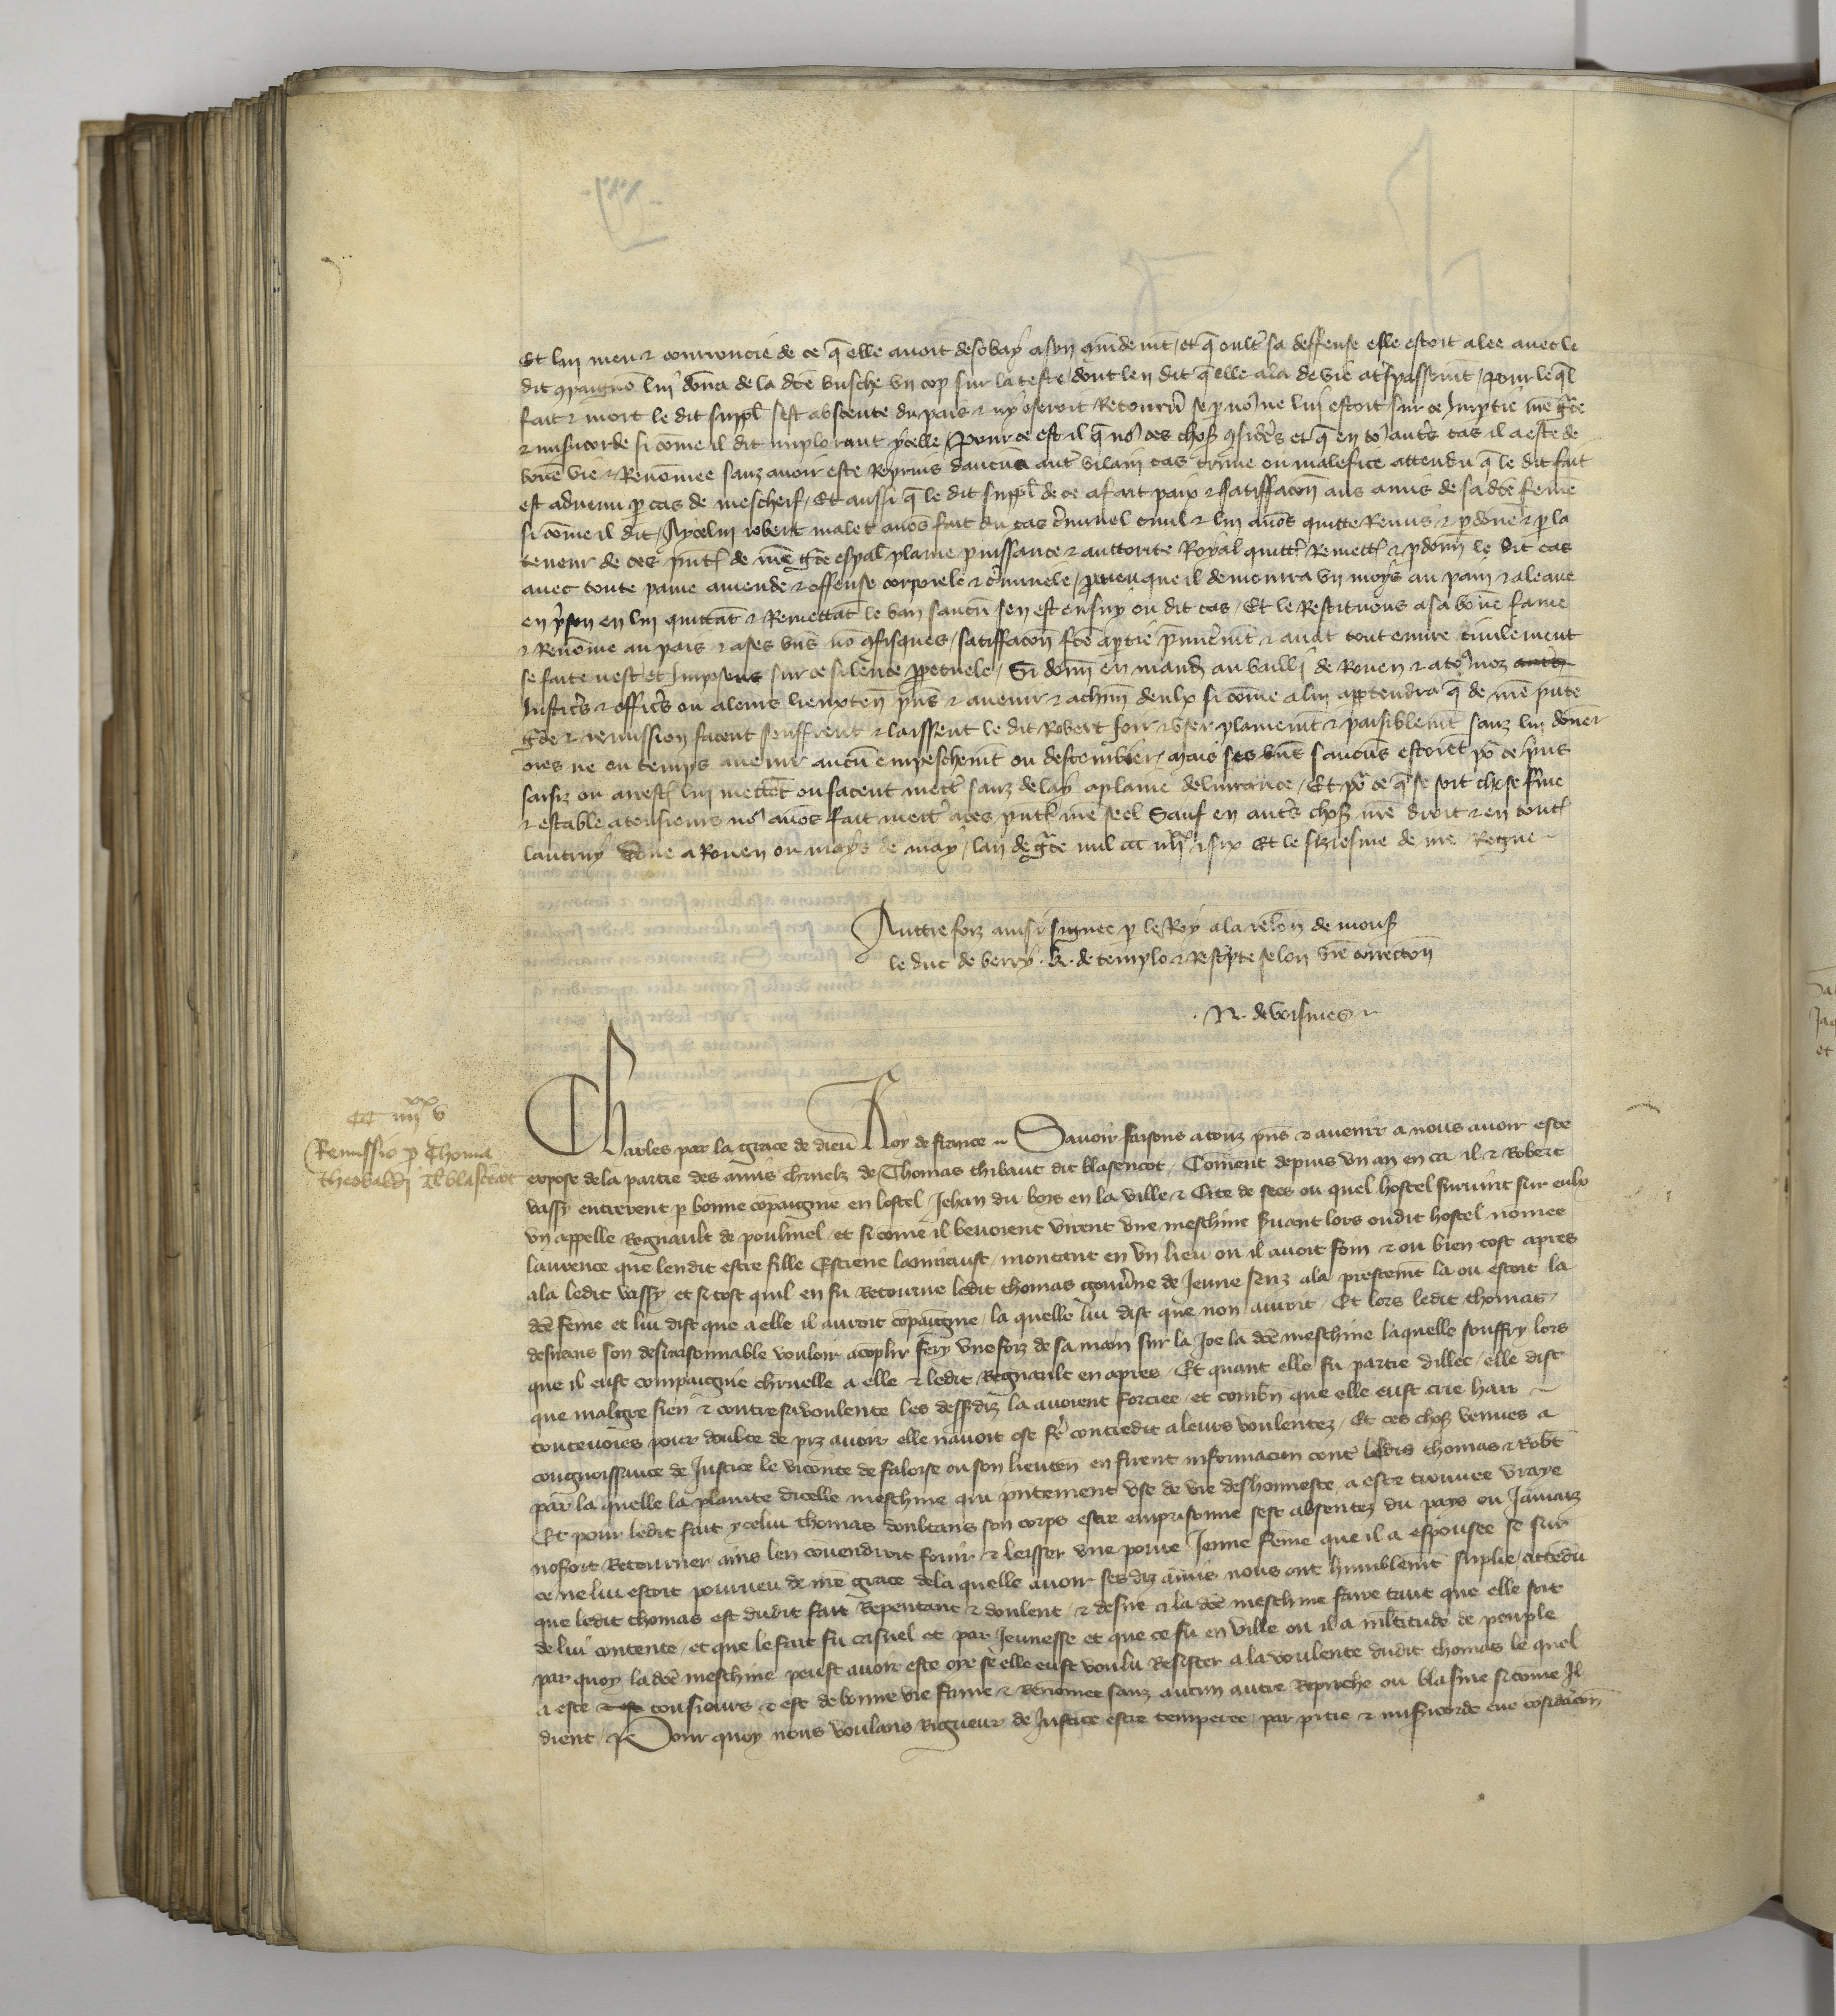 Et lui meu & courroucie de ce q̃ elle avoit desobay a son cõmãdemt / et q̃ oultr̃ sa deffense elle estoit alee avec le
dit cõpaignõ lui dõna de la dcẽ busche un cop sur la teste / dont len dit q̃ elle ala de vie a trespassemt / pour le q̃l
fait & mort le dit suppl̃ sest absente du pais & ny oseroit Retourñ se p no9 ne lui estoit sur ce Impti nr̃e gr̃ce
& misicorde si cõme il dit implorant ycelle / Pour ce est il q̃ no9 ces choses cõsidẽs et q̃ en to9 autr̃s cas il a este de
bõne vie & Renõmee sanz avoir este Repris daucũ autr̃ vilain cas crime ou malefice attendu q̃ le dit fait
est advenu p cas de meschief / Et aussi q̃ le dit suppl̃ de ce a fait paix & satiffacõn aus amis de sa dcẽ feme
si cõme il dit / A ycelui robert malet avõs fait du cas cr̃iminel civil & lui avõs quitte Remis & pdone & p la
teneur de ces p̃nt̃ de nr̃e gr̃ce esp̃al plaine puissance & auctorite Royal quittõs Remettõs & pdonõs le dit cas
avec toute paine amende & offense corporele & cr̃iminele / pourveu que il demourra un moys au pain & a leaue
en p̃son en lui quittãt & Remettãt le ban saucũ sen est ensuy ou dit cas / Et le Restituons a sa bõne fame
& Renõme au pais & a ses biẽs nõ cõfisques / satiffacõn fcẽ a ptie p̃mierẽmt & avãt tout euvre civilement
se faite nest et Imposons sur ce silence ppetuele / Si donõs en mandem̃ au bailli de Rouen & a to9 noz autr̃s
Justicr̃s & officr̃s ou a leurs lieuxteñ p̃ns & avenir & a chũn deulx si cõme a lui appartendra q̃ de nr̃e p̃nte
gr̃ce & remission facent seuffrent & laissent le dit Robert Joir & user plainemẽt & paisiblemẽt sanz lui dõner
ores ne ou temps avenir aucũ empeschemt ou destourbier / mais ses biẽs saucũs estoiẽt po9 ce prins
saisiz ou arrest̃ lui mettẽt ou facent mettr̃ sanz delay a plaine delivrance / Et po9 ce q̃ se soit chose fr̃me
& estable a tousiours no9 avõs fait mettr̃ a ces p̃nt̃ nr̃e seel Sauf en autr̃s choses nr̃e droit & en tout̃
lautruy Done a Rouen ou moys de may / lan de gr̃ce mil ccc iiiixx & six Et le siziesme de nr̃e Regne
Autrefoiz ainsi signee p le Roy a la relõn de mons̃
le duc de berry . R. de templo & Rescripte selon vr̃e correctõn
. N. de voisines
Charles par la grace de dieu Roy de france Savoir faisons a touz p̃ns & avenir a nous avoir este
CC iiiixx v
Remissio p Thoma
theobaldi d̃l blascecot
expose de la partie des amis chrnelz de Thomas thibaut dit blasencot / Cõment depuis un an en ca il & Robert
vassy entrerent p bonne cõpaignie en lostel Jehan du boys en la ville & Cite de sees ou quel hostel survint sur eulx
un appelle Regnault de poulinel et si cõme il bevoient virent une meschine s̃vant lors oudit hostel nõmee
laurence que lendit estre fille Estiene montant en un lieu ou il avoit foin & ou bien tost apres
ala ledit vassy et si tost quil en fu Retourne ledit thomas gouv̾ne de Jeune senz ala prestemt la ou estoit la
dcẽ fẽme et lui dist que a elle il auroit cõpaignie / la quelle lui dist que non auroit / Et lors ledit thomas
desirans son desraisonnable vouloir acõplir fery une foiz de sa main sur la Joe la dcẽ meschine laquelle souffry lors
que il eust compaignie chrnelle a elle & ledit Regnault en apres / Et quant elle fu partie dillec / elle dist
que maugre sien & contre sa voulente les dessusdiz la avoient forciee / et combñ que elle eust crie haro
toutevoies pour doubte de piz avoir elle navoit ose fr̃e contredit a leurs voulentez / Et ces choses venues a
congnoissance de Justice le viconte de faloise ou son lieuteñ en firent informacion contr̃ lesdis thomas & Robt̃
par la quelle la plainte dicelle meschine qui p̃ntement use de vie deshonneste a este trouvee vraye
Et pour ledit fait ycelui thomas doubtans son corps estre emprisonne sest absentez du pays ou Jamaiz
noseroit Retourner ains len convendroit fouir & lessser une povre Jeune fẽme que il a espousee se sur
ce ne lui estoit pourveu de nr̃e grace de la quelle avoir sesdiz amis nous ont humblemt suplie / attẽdu
que ledit thomas est dudit fait Repentant & doulent / & desire a la dcẽ meschine faire tant que elle soit
de lui contente / et que le fait fu casuel et par Jeunesse et que ce fu en ville ou il a ml̃titude de peuple
par quoy la dcẽ meschine peust avoir este oye se elle eust voulu Resister a la voulente dudit thomas le quel
a este & est tousiours & est de bonne vie fame & Renõmee sanz aucun autre Reprouche ou blasme si cõme Il
dient / Pour quoy nous voulans Rigueur de Justice estre temperee par pitie & misericorde eue cõsidacõn